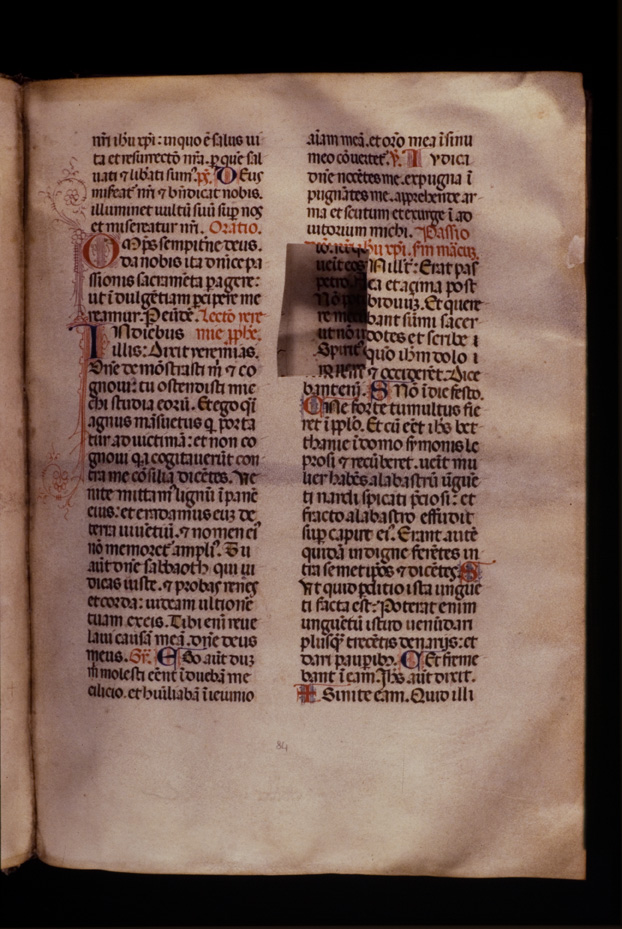 nr̄i ih̄u xp̄i: in quo ē salus ui
ta et resurrectō nr̄a. p̱ que sal
uati ⁊ lib̄ati sum᷒. ps̄. Deus
misereat᷑ nr̄i ⁊ bn̄dicat nobis.
illuminet uultū suū sup̱ nos
et misereatur nr̄i. Oratio.
Omp̄s sempitn̄e deus.
da nobis ita dn̄ice pa
ssionis sacramēta pagere:
ut ī dulgētiam p̱cipere me
reamur. Per eūdē. Lectō iere
In diebus mie p̱ph̄e.
illis: Dixit yeremias.
Dn̄e demōstrasti m̄ ⁊ co
gnoui: tu ostendisti mic
chi studia eorū. Et ego q̄i
agnus māsuetus q̱ porta
tur ad uictimā: et non co
gnoui q̄a cogitauerūt con
tra me cōsilia dicētes. Ve
nite mittam᷒ lignū ī panē
eius: et erradamus eūz de
terra uiuētiū. ⁊ nomen ei᷒
nō memoret᷑ ampli᷒. Tu
aūt dn̄e sabbaoth qui iu
dicas iuste. ⁊ probas renes
et corda: uideam ultionē
tuam ex eis. Tibi eni reue
laui causā meā. dn̄e deus
meus. Gr̄. Ego aūt dūz
m̄ molesti eēnt īduebā me
cilicio. et hūiliabā ī ieiunio
aīam meā. et orō mea ī sinu
meo cōuertet᷑. v̄. Iudica
dn̄e nocētes me. expugna ī
pugnātes me. apprehende ar
ma et scutum et exurge ī ad
iutorium michi. Passio
ih̄u xp̄i. sm̄ marcū.
Nillt᷑: Erat pas
ca et azima post
biduūz. Et quere
bant sūmi sacer
dotes et scribe
quō ih̄m dolo
⁊ occideret. Dice
bant eni. S Nō ī die festo.
C Ne forte tumultus fie
ret ī pplō. Et cū eēt ih̄s bet
thanie ī domo symonis le
prosi ⁊ recūberet. uēit mu
lier habēs alabastrū ūgue
ti nardi spicati p̄ciosi: et
fracto alabastro effudit
sup̱ capite ei᷒. Erant autē
quidā indigne ferētes in
tra semetip̄os ⁊ dicētes. S
Vt quid p̱ditio ista ungue
ti facta est: Poterat enim
unguētū istud uenūdari
plusq̄ trecētis denarijs: et
dari paupib᷒. C Et freme
bant ī eam. Ih̄s aūt dixit.
✝ Sinite eam. Quid illi
84